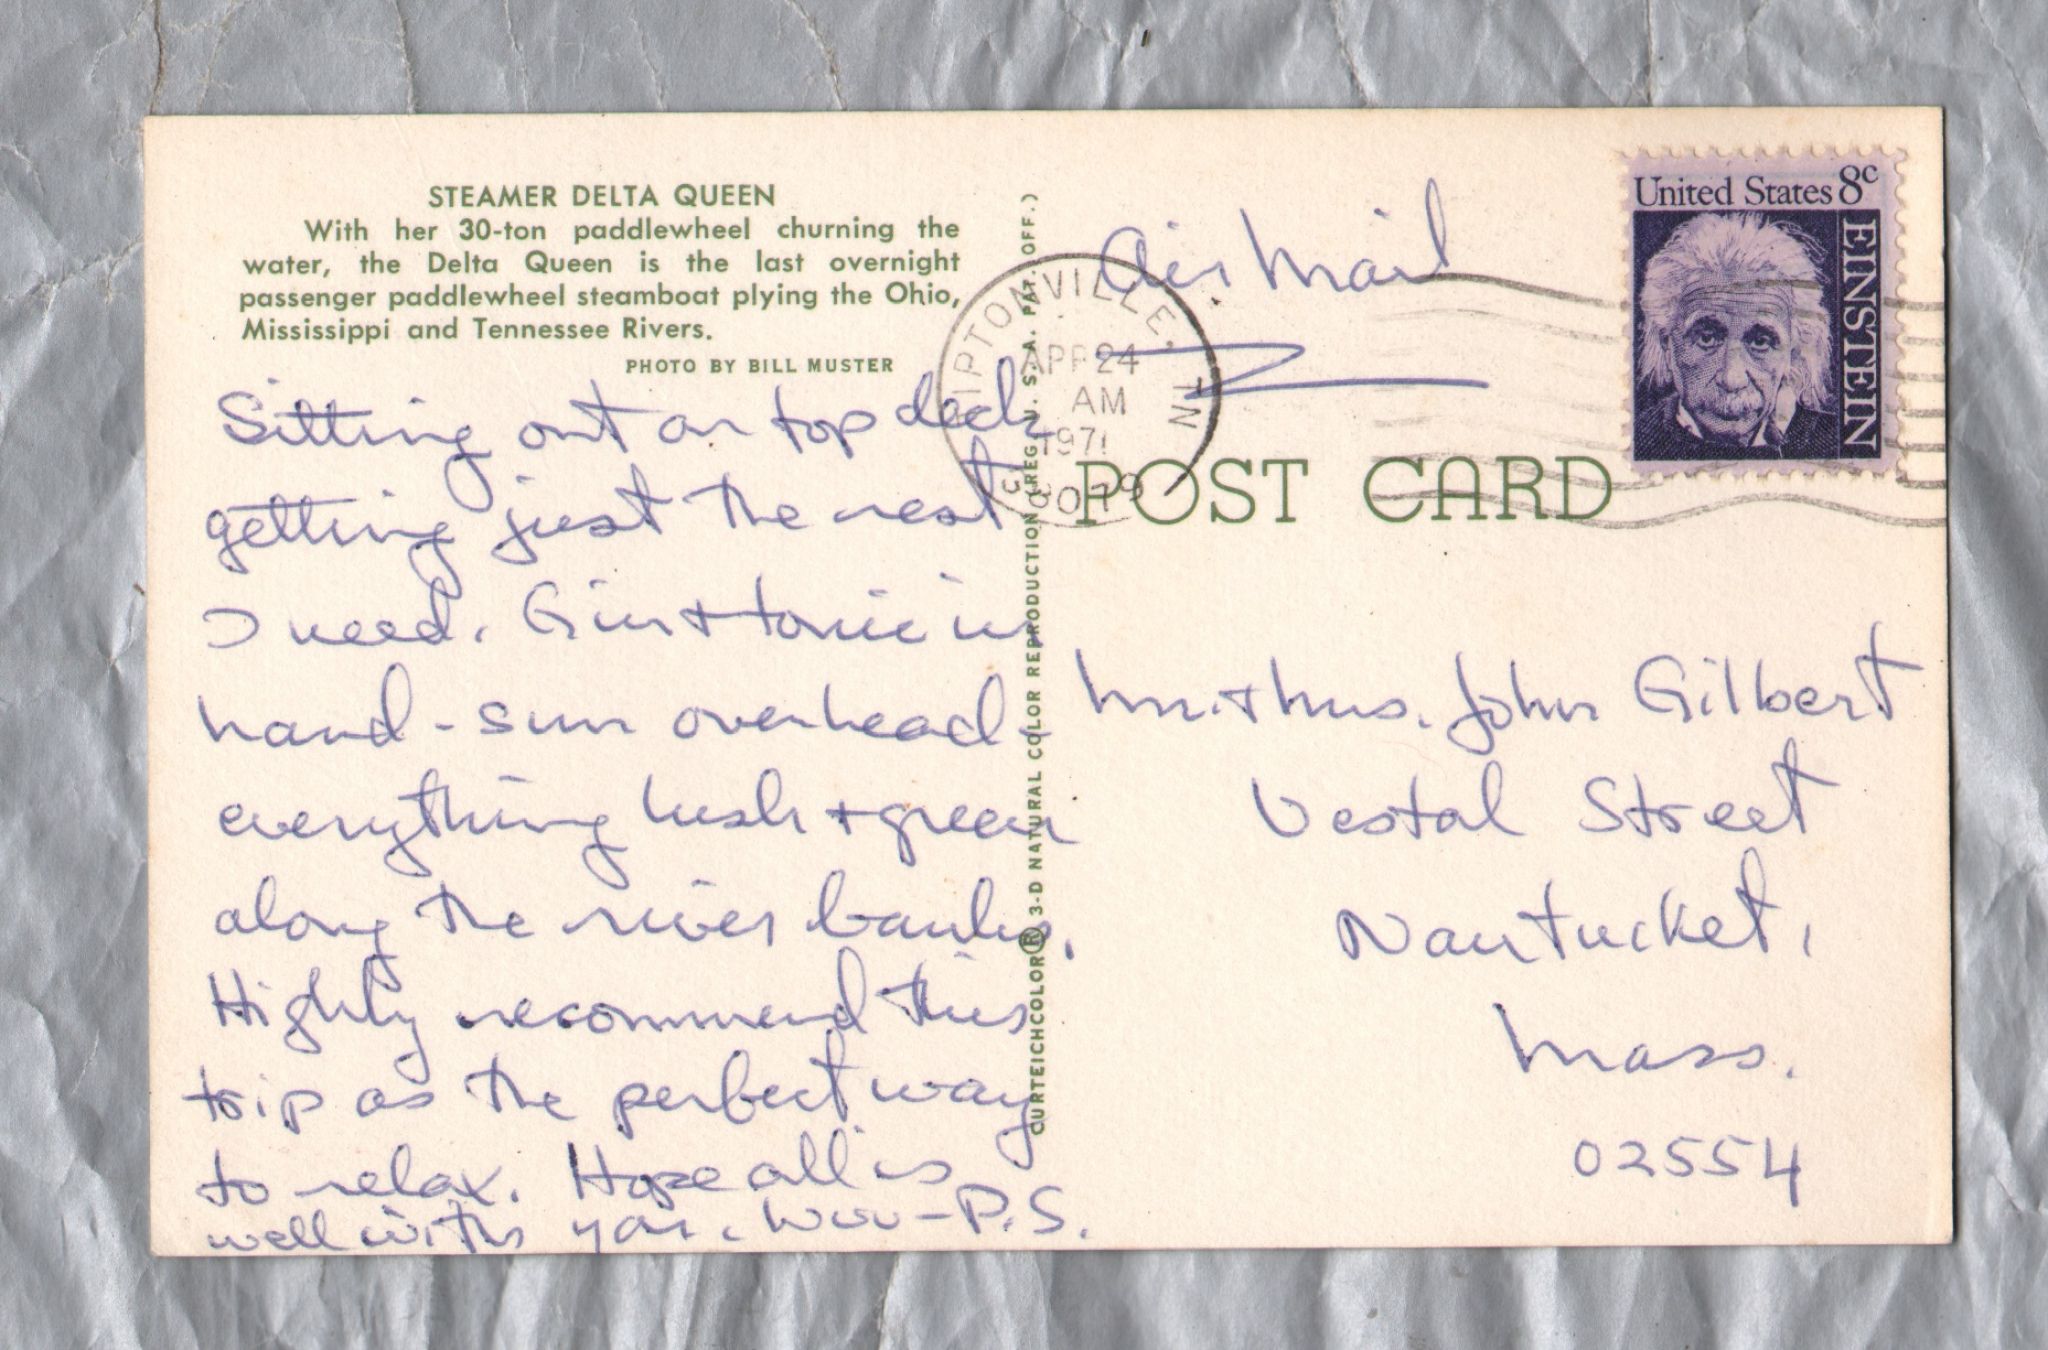 STEAMER DELTA QUEEN
With her 30-ton paddlewheel churning the
water, the Delta Queen is the last overnight
passenger paddlewheel steamboat plying the Ohio,
Mississippi and Tennessee Rivers.
PHOTO BY BILL MUSTER
Sitting out on top deck
getting just the rest
I need. Gin + tonic in
hand - sun overhead -
everything lush + green
along the river banks.
Highly recommend this
trip as the perfect way
to relax. Hope all is
well with you. P.S.
CURTEICHCOLOR® 3-D NATURAL COLOR REPRODUCTION (REG. U. S. A. PAT. OFF.)
Air Mail
TIPTONVILLE, TN
APR 24
AM
1971
United States 8c
EINSTEIN
POST CARD
Mr. + Mrs. John Gilbert
Vestal Street
Nantucket,
Mass.
02554